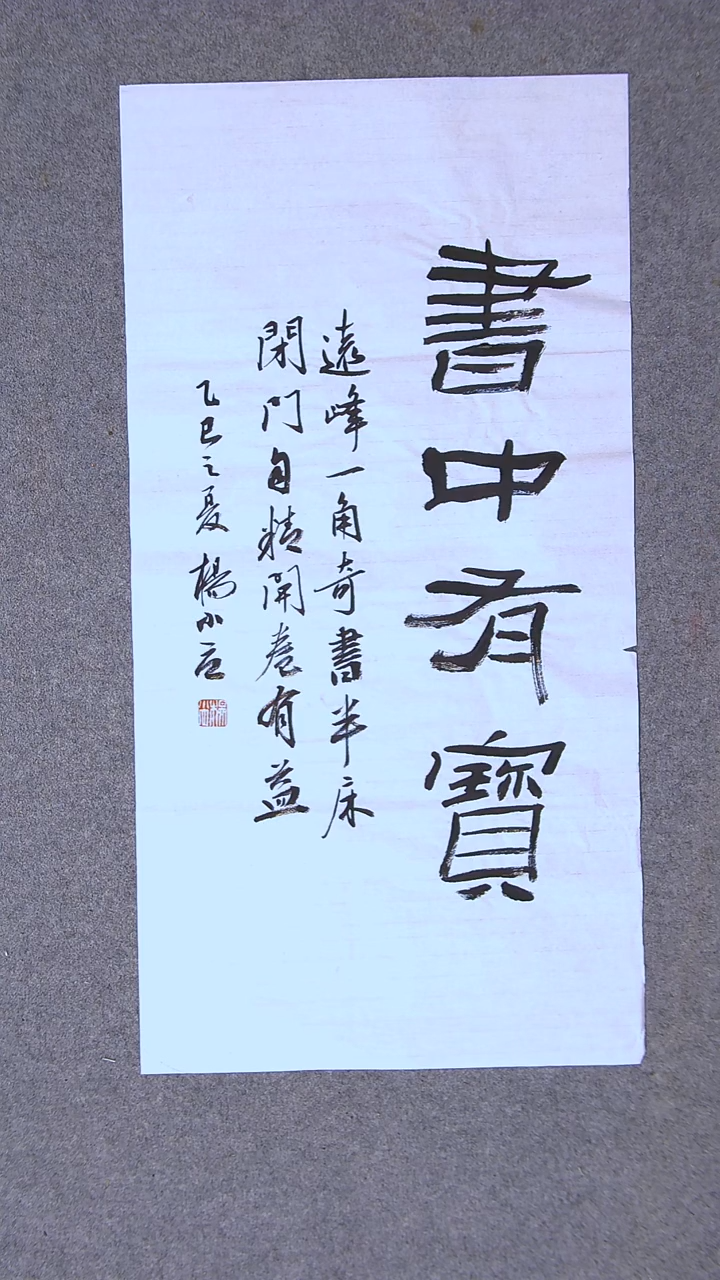 書中有寶
遠峰一角奇書半床
閉門自精開卷有益
乙巳之夏楊小